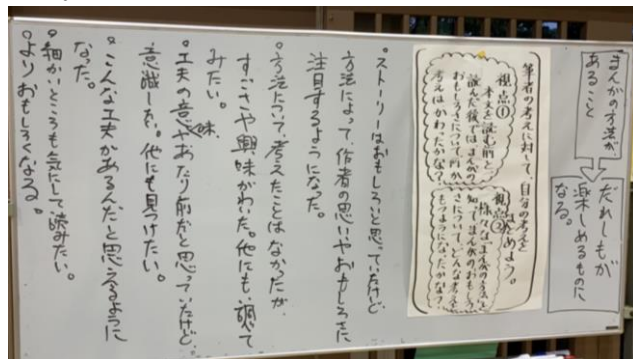 まんがの方法が
あること
だれしもが
楽しめるものに
なる。
筆者の考えに対して、自分の考えを
まとめよう。
視点①
本文を読む前と、
読んだ後では、まんがの
おもしろさについて、何か
考えはかわったかな?
視点②
様々な「まんがの方法」を
知って、まんがのおもしろ
さについて、どんな考えを
もつようになったかな?
・ストーリーはおもしろいと思っていたけど、
方法によって、作者の思いやおもしろさに
注目するようになった。
・方法について、考えたことはなかったが、
すごさや興味がわいた。他にも調べて
みたい。
・工夫の意味、あたり前だと思っていたけど、
意識した。他にも見つけたい。
・こんな工夫があるんだと思えるように
なった。
・細かいところも気にして読みたい。
・よりおもしろくなる。